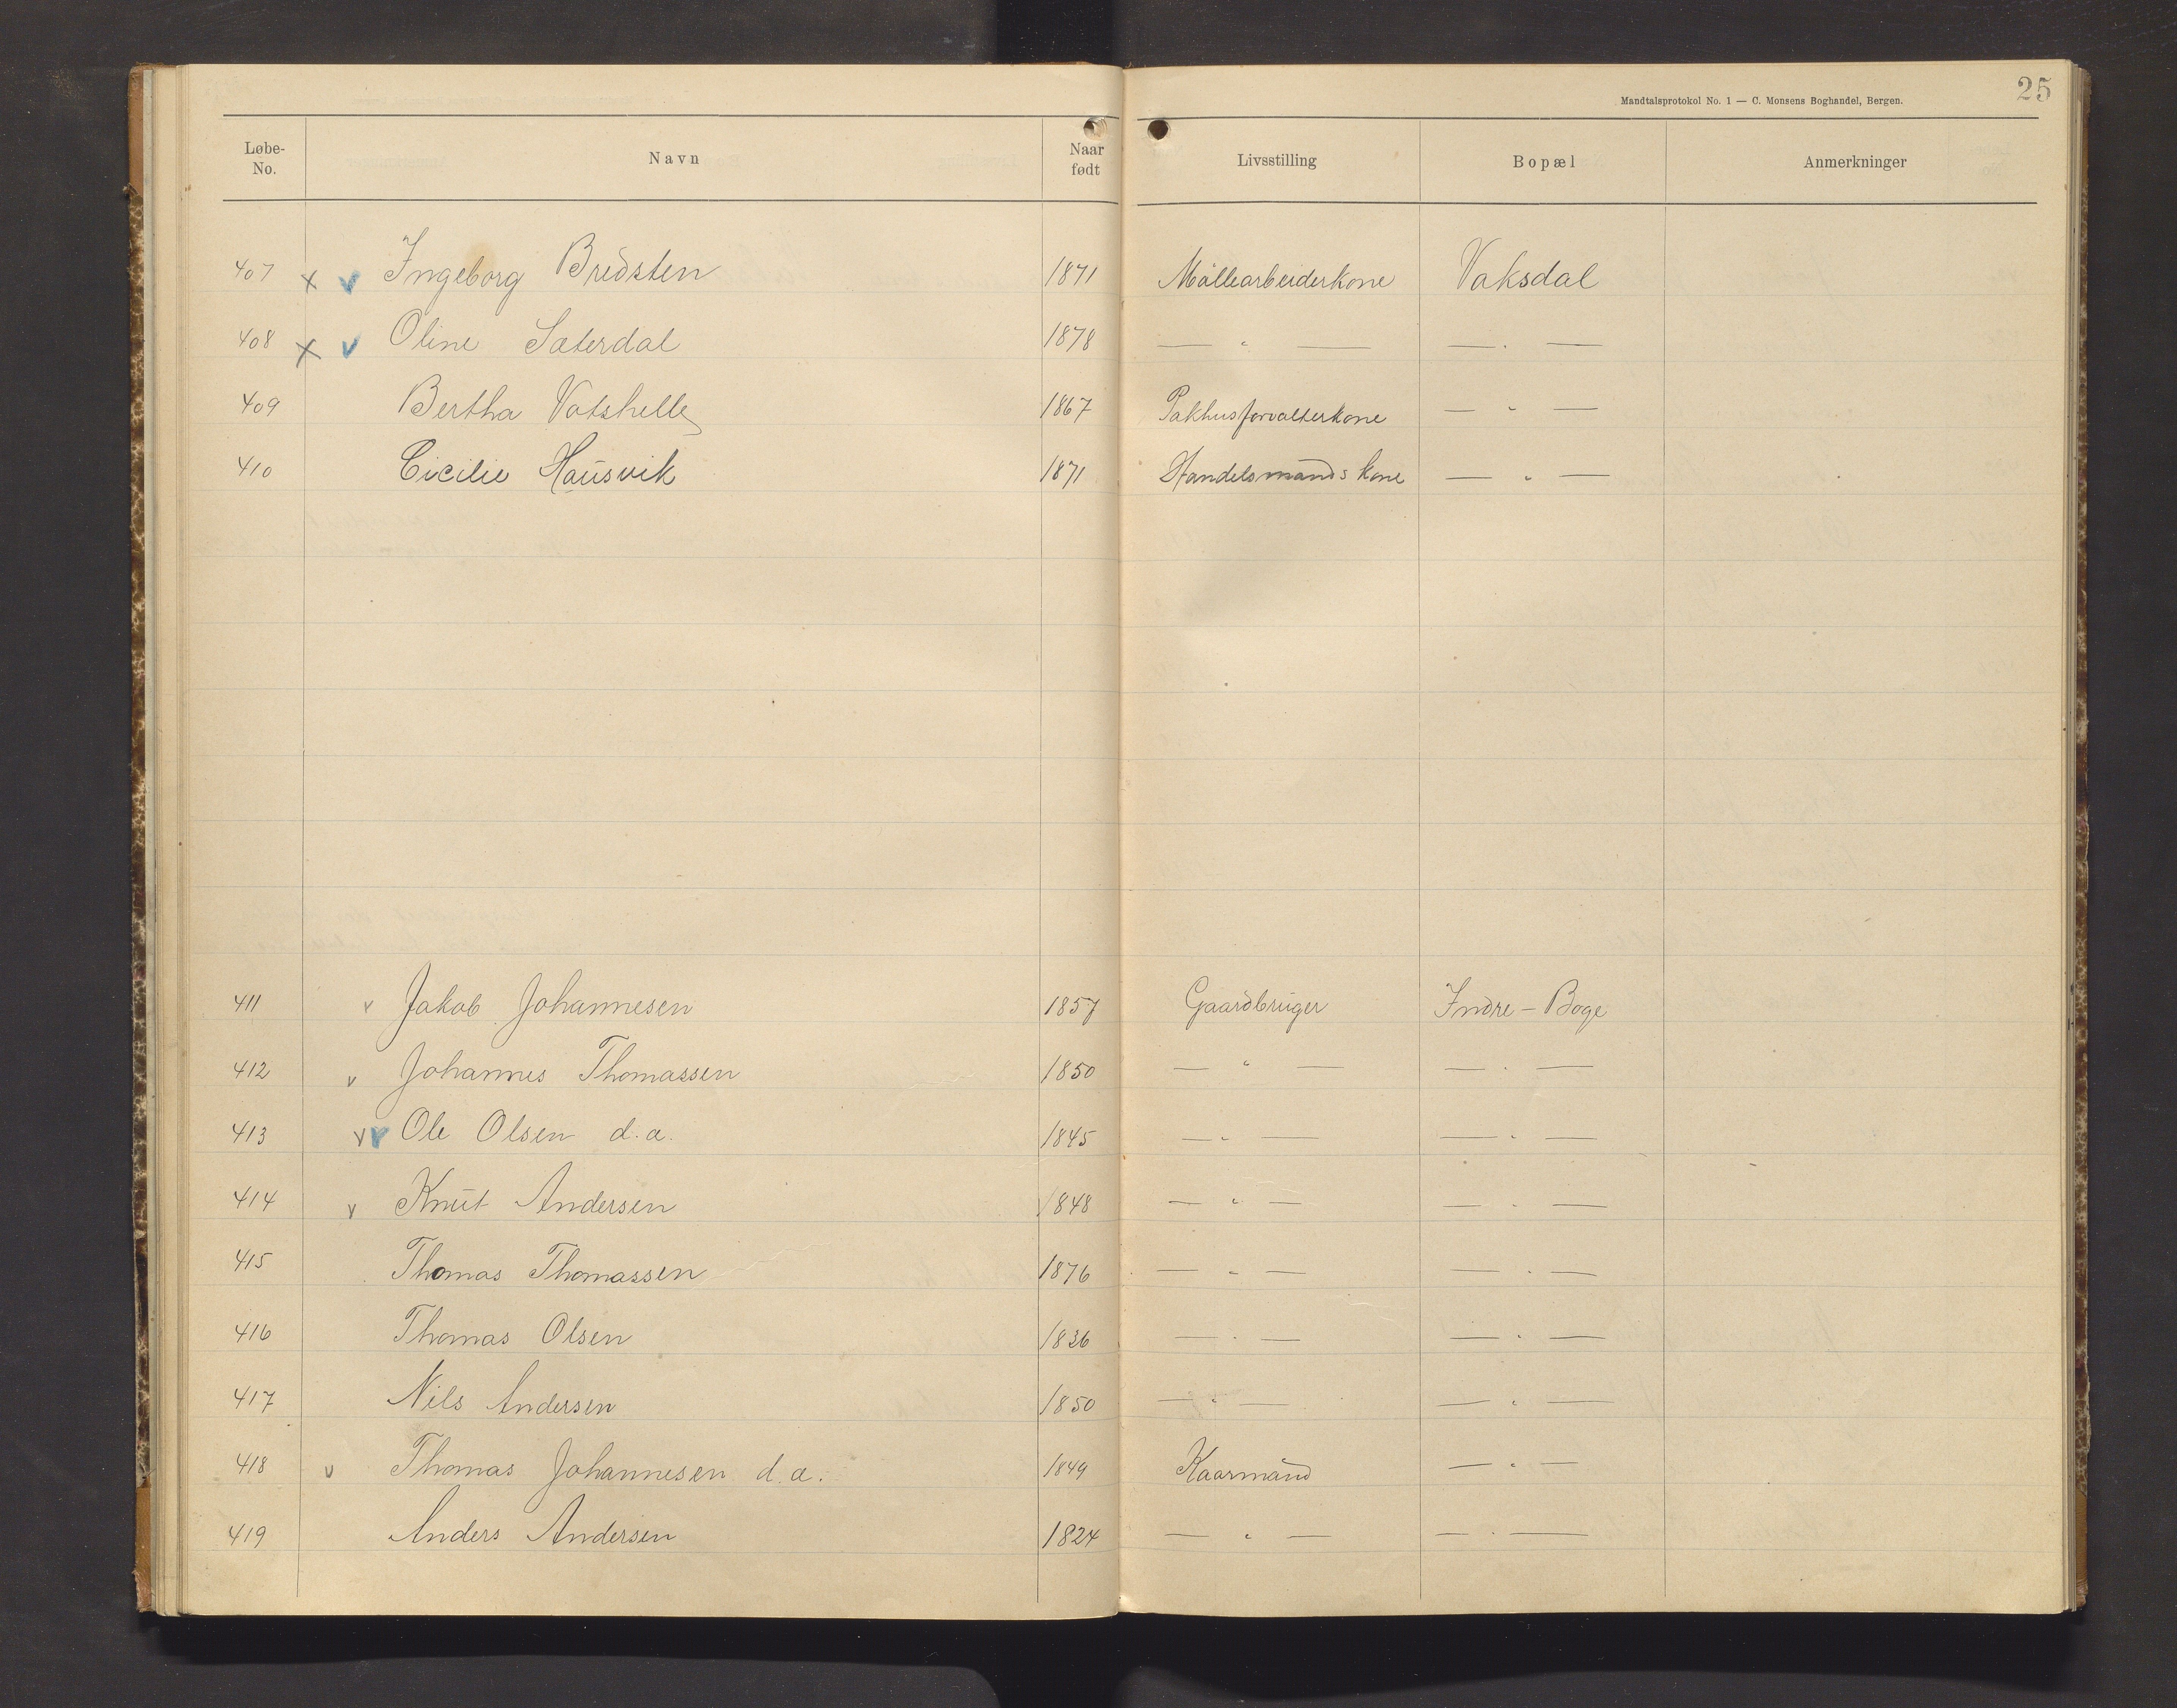 25
Mandtalsprotokol No. 1 — C. Monsens Boghandel, Bergen.
Løbe-No. Navn Naar født Livsstilling Bopæl Anmerkninger
407 x v Ingeborg Bredsten 1871 Möllearbeiderkone Vaksdal
408 x v Oline Sæterdal 1878 — " — — " —
409 Bertha Vatshelle 1867 Pakhusforvalterkone — " —
410 Cicilie Hausvik 1871 Handelsmands kone — " —
411 v Jakob Johannesen 1857 Gaardbruger Indre - Boge
412 v Johannes Thomassen 1850 — " — — " —
413 v v Ole Olsen d.a. 1845 — " — — " —
414 v Knut Andersen 1848 — " — — " —
415 Thomas Thomassen 1876 — " — — " —
416 Thomas Olsen 1836 — " — — " —
417 Nils Andersen 1850 — " — — " —
418 v Thomas Johannesen d.a. 1849 Kaarmand — " —
419 Anders Andersen 1824 — " — — " —